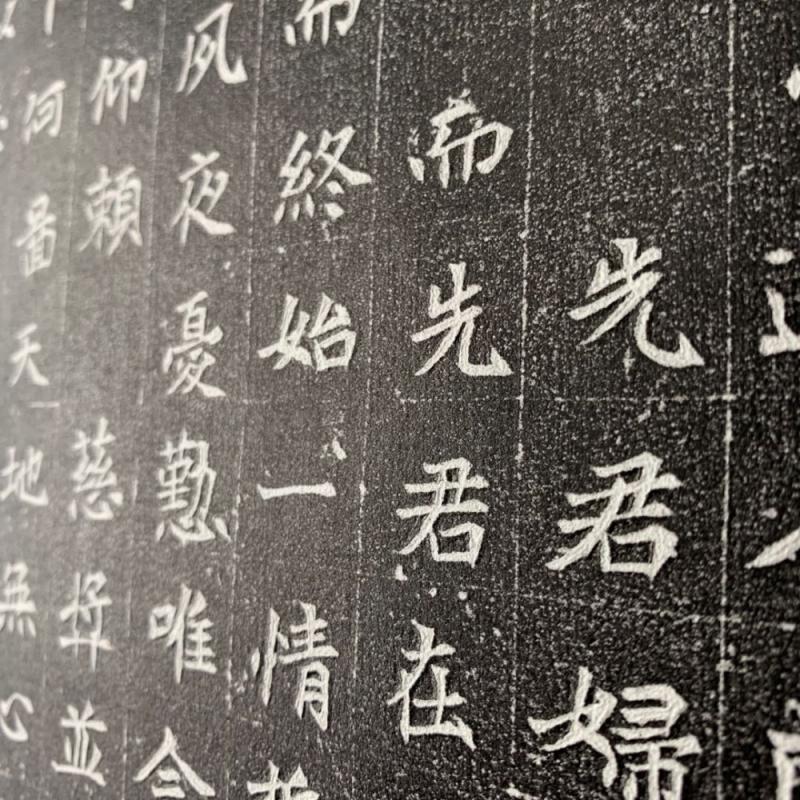 先君婦
而先君在
而終始一情
夙夜憂懃唯
仰賴慈
並
何啚天地無心